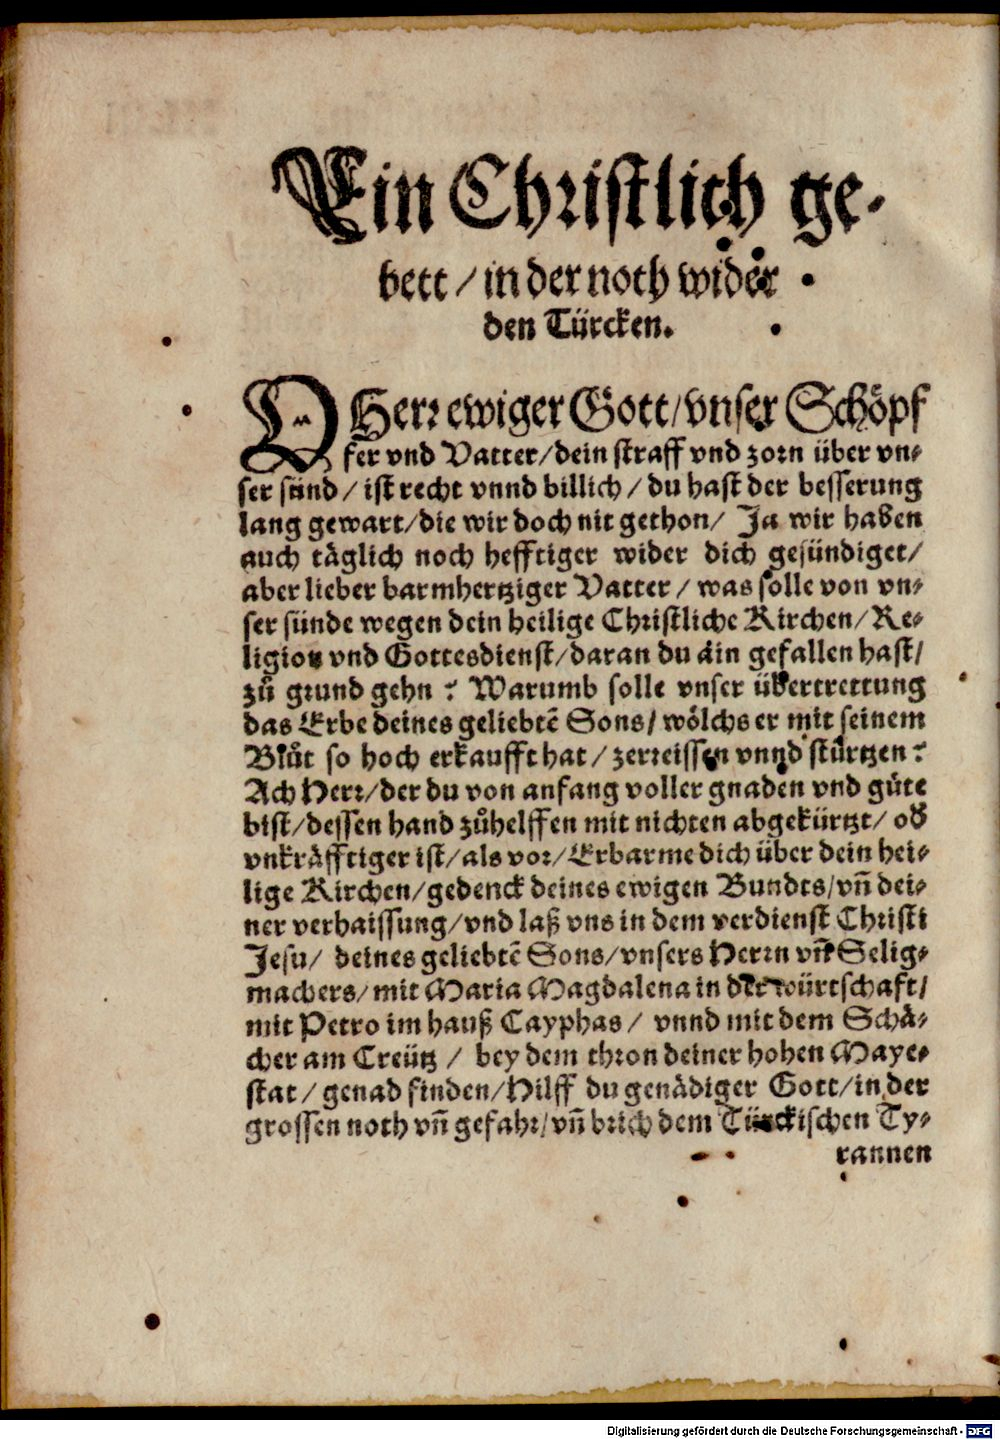 Ein Christlich ge-
bett / in der noth wider
den Türcken.
O Herr ewiger Gott / vnser Schöpf
fer vnd Vatter / dein straff vnd zorn über vn-
ser sünd / ist recht vnnd billich / du hast der besserung
lang gewart / die wir doch nit gethon / Ja wir haben
auch täglich noch hefftiger wider dich gesündiget /
aber lieber barmhertziger Vatter / was solle von vn-
ser sünde wegen dein heilige Christliche Kirchen / Re-
ligion vnd Gottesdienst / daran du ain gefallen hast /
zů grund gehn? Warumb solle vnser übertrettung
das Erbe deines geliebtē Sons / wölchs er mit seinem
Blůt so hoch erkaufft hat / zerreissen vnnd stürtzen?
Ach Herr / der du von anfang voller gnaden vnd güte
bist / dessen hand zůhelffen mit nichten abgekürtzt / od
vnkräfftiger ist / als vor / Erbarme dich über dein hei-
lige Kirchen / gedenck deines ewigen Bundts / vñ dei-
ner verhaissung / vnd laß vns in dem verdienst Christi
Jesu / deines geliebtē Sons / vnsers Herrn vñ Selig-
machers / mit Maria Magdalena in der würtschaft /
mit Petro im hauß Cayphas / vnnd mit dem Schä-
cher am Creütz / bey dem thron deiner hohen Maye-
stat / genad finden / Hilff du genädiger Gott / in der
grossen noth vñ gefahr / vñ brich dem Türckischen Ty-
rannen
Digitalisierung gefördert durch die Deutsche Forschungsgemeinschaft - DFG